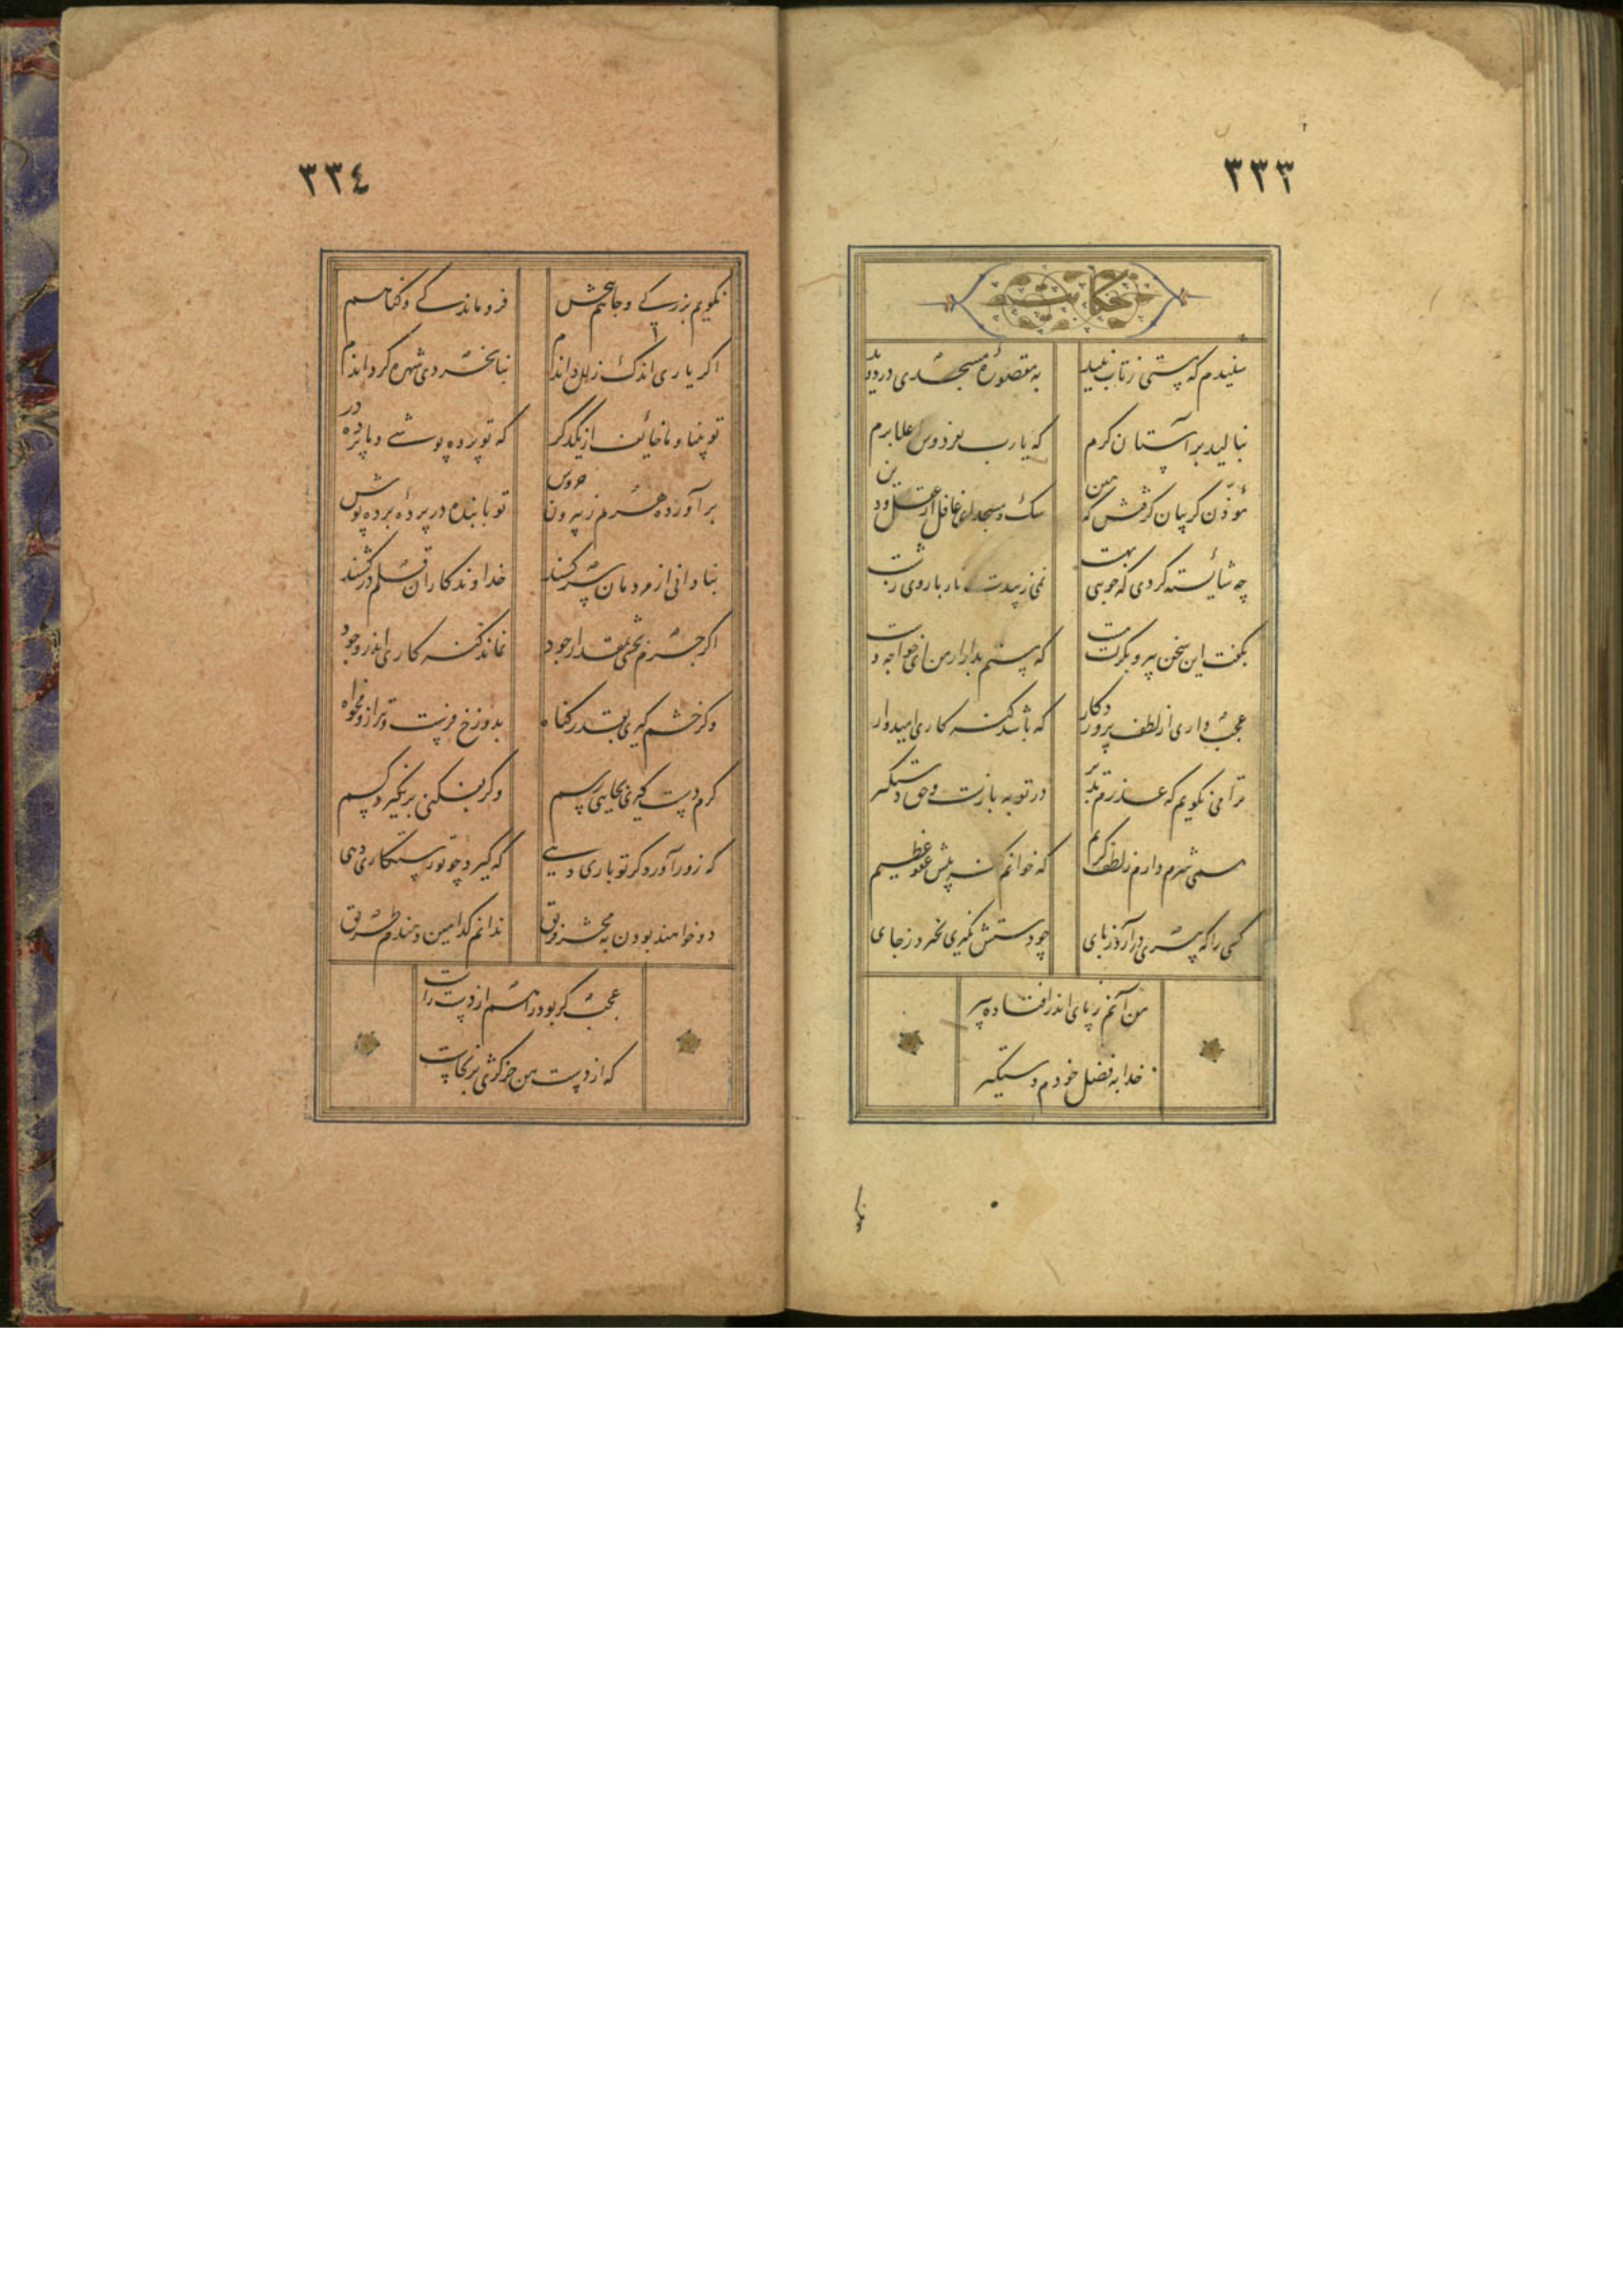 ٣٣٣
حکایت
شنیدم که مستی ز تاب نبید
به مقصورهٔ مسجدی در دوید
بنالید بر آستان کرم
که یارب بفردوس اعلا برم
مؤذن گریبان گرفتش که هین
سگ و مسجد ای غافل از عقل و دین
چه شائسته کردی که جویی بهشت
نمی زیبدت ناز با روی زشت
بگفت این سخن پیر و بگریست مست
که مستم بدار از من ای خواجه دست
عجب داری از لطف پروردگار
که باشد گنه کاری امیدوار
ترا می نگویم که عذرم پذیر
در توبه بازست و حق دستگیر
همی شرم دارم ز لطف کریم
که خوانم گنه پیش عفو عظیم
کسی را که پیری درآرد ز پای
چو دستش نگیری نخیزد ز جای
من آنم ز پای اندر افتاده پیر
خدایا به فضل خودم دستگیر
نگو
٣٣٤
نگویم بزرگی و جاهم ببخش
فروماندگی و گناهم
اگر یاری اندک زلل داندم
بنابخردی شهره گرداندم
تو بینا و ما خائف از یکدگر
که تو پرده پوشی و ما پرده در
برآورده مردم ز بیرون خروش
تو با بنده در پرده و پرده پوش
بنادانی ار مردمان سر کشند
خداوندگاران قلم درکشند
اگر جرم بخشی بمقدار جود
نماند گنه کاری اندر وجود
وگر خشم گیری بقدر گناه
بدوزخ فرست و ترازو مخواه
گرم دست گیری بجایی رسم
وگر بفکنی برنگیرد کسم
که زور آورد گر تو یاری دهی
که گیرد چو تو رستگاری دهی
دو خواهند بودن به محشر فریق
ندانم کدامین دهندم طریق
عجب گر بود راهم از دست راست
که از دست من جز کژی برنخاست